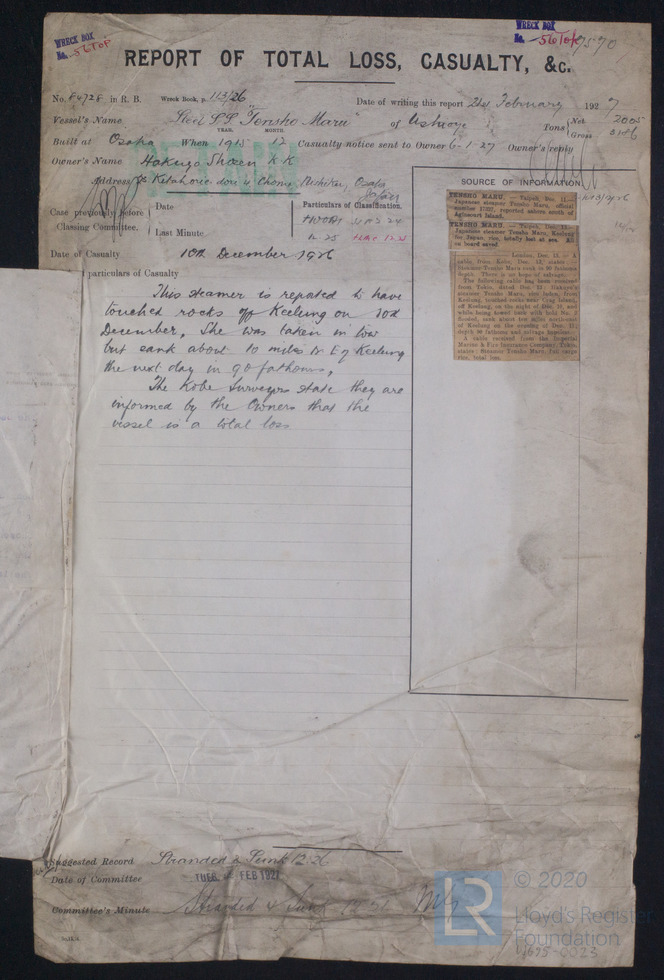 WRECK BOX
No. 56 TOP
WRECK BOX
No. 56 TOP
7570
REPORT OF TOTAL LOSS, CASUALTY, &c.
No. 84728 in R. B. Wreck Book, p. 113/26 Date of writing this report 21st February 1927
Vessel's Name Steel S.S. "Tensho Maru" of Tons Net 2005
Gross 3186
YEAR. MONTH.
Built at Osaka When 1915 12 Casualty notice sent to Owner 6-1-27 Owner's reply
Owner's Name Hokuyo Shosen K K
Address Kitahoridori 4 Chome, Osaka
DETAIN
SOURCE OF INFORMATION
Case previously before
Classing Committee.
Date
Last Minute
Particulars of Classification.
12.25
Date of Casualty 10th December 1926
particulars of Casualty
This steamer is reported to have
touched rocks off Keelung on 10th
December. She was taken in tow
but sank about 10 miles N E of Keelung
the next day in 90 fathoms.
The Kobe Surveyors state they are
informed by the Owners that the
vessel is a total loss
TENSHO MARU. — Taipeh, Dec. 11.—
Japanese steamer Tensho Maru, official
number 17957, reported ashore south of
Agincourt Island.
TENSHO MARU. — Taipeh, Dec.
Japanese steamer Tensho Maru, Keelung
for Japan, rice, totally lost at sea. All
on board saved.
London, Dec. 13. — A
cable, from Kobe, Dec. 13, states :—
Steamer Tensho Maru sunk in 90 fathoms
depth. There is no hope of salvage.
The following cable has been received
from Tokio, dated Dec. 13 :
Keelung, touched rocks near
of Keelung, on the night of Dec. 10, and
while being towed back with hold No. 2
flooded, sank about ten miles north-east
of Keelung on the evening of Dec. 11;
depth 90 fathoms and salvage hopeless.
A cable received from the Imperial
Marine & Fire Insurance Company, Tokio,
states : Steamer Tensho Maru, full cargo
rice, total loss.
Suggested Record Stranded & Sunk 12.26
Date of Committee TUES. FEB 1927
Committee's Minute Stranded & Sunk 12.26
LR
© 2020
Lloyd's Register
Foundation
W695-0023